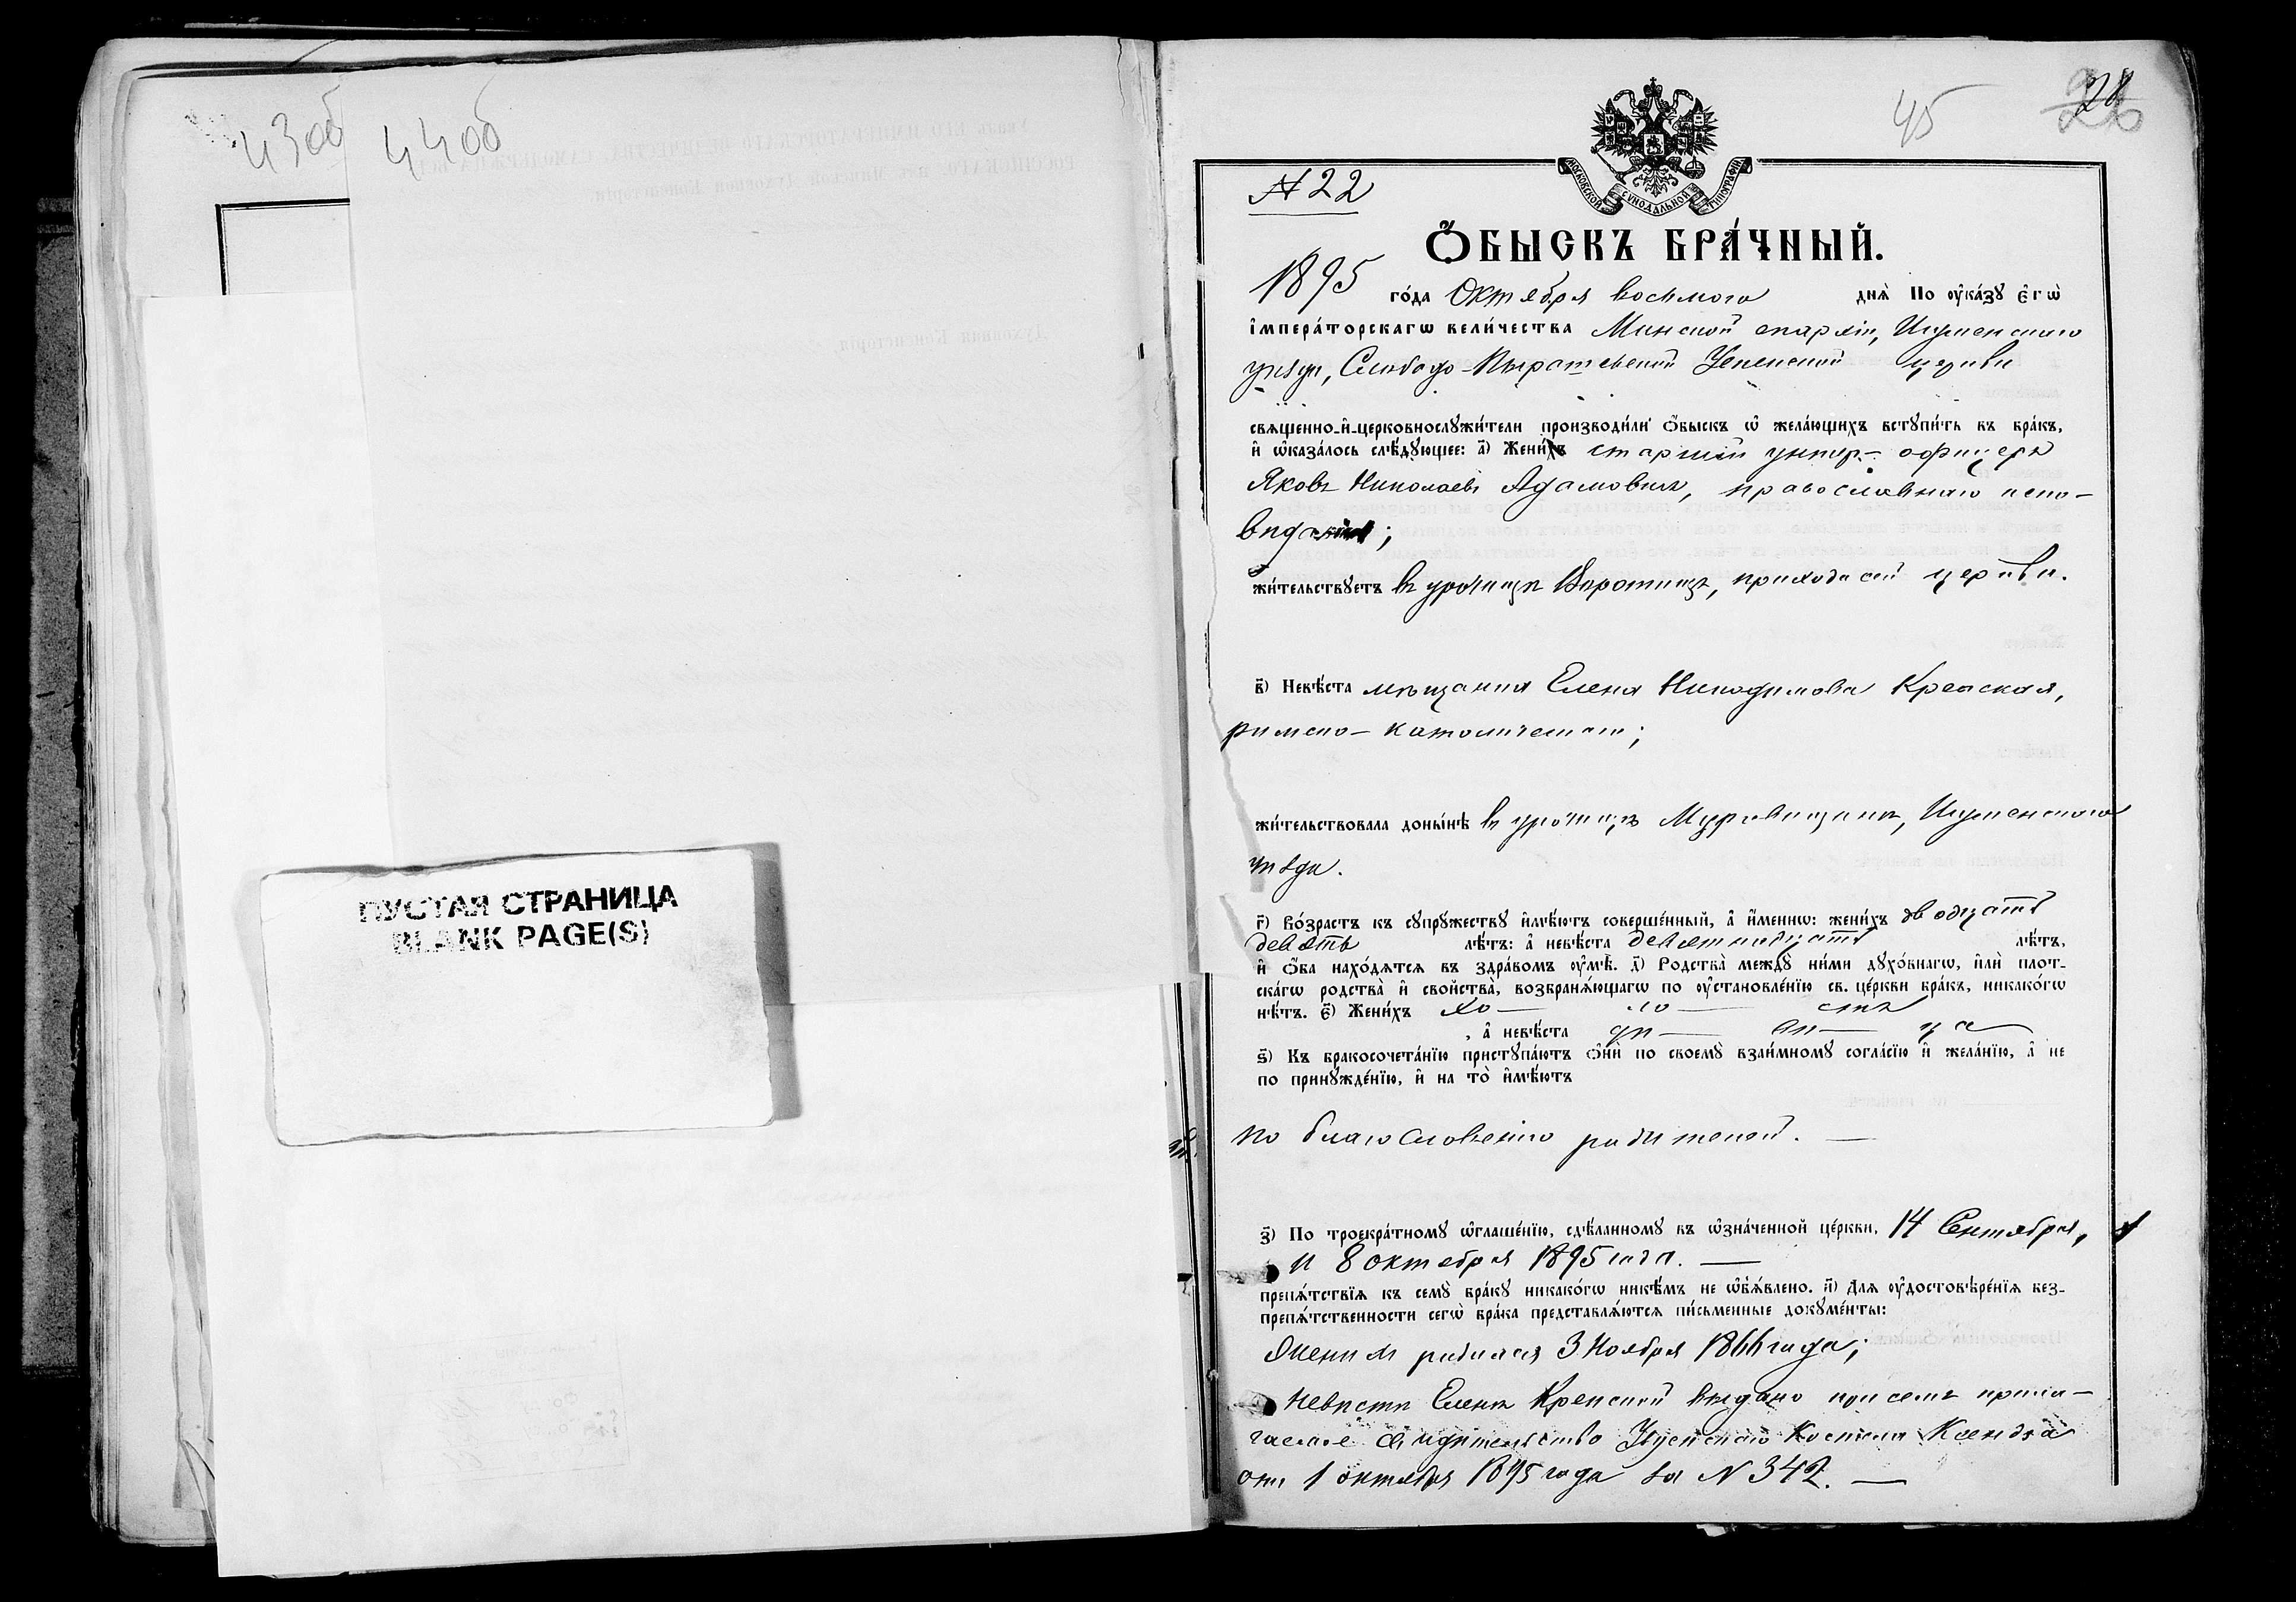 43об
44об
ПУСТАЯ СТРАНИЦА
BLANK PAGE(S)
45
28
26
МОСКОВСКОЙ СѴНОДАЛЬНОЙ ТИПОГРАФІИ
№ 22
Ѻ҆БЫСКЪ БРА́ЧНЫЙ.
1895 го́да Октября восьмого днѧ̀ По ᲂу҆ка́зꙋ є҆гѡ̀
і҆мпера́торскагѡ вели́чества Минской епархіи, Игуменскаго
уѣзда, Слободо-Пырашевской Успенской церкви
свѧщенно-и҆-церковнослꙋжи́тели производи́ли ѻ҆́быскъ ѡ҆ жела́ющихъ встꙋпи́ть въ бра́къ,
и҆ ѡ҆каза́лось слѣ́дꙋющее: а҃) Жени́хъ старшій унтер-офицеръ
Яковъ Николаевъ Адамовичъ, православнаго испо-
вѣданія;
жи́тельствꙋетъ въ урочищѣ прихода сей церкви.
в҃) Невѣ́ста мѣщанка Елена Никодимова Крепская,
римско-католическаго;
жи́тельствовала доны́нѣ въ урочищѣ Игуменскаго
уѣзда.
г҃) Во́зрастъ къ сꙋпрꙋжествꙋ и҆мѣ́ютъ соверше́нный, а҆ и҆́меннѡ: жени́хъ двадцать
девять лѣ́тъ: а҆ невѣ́ста девятнадцать лѣ́тъ,
и҆ ѻ҆́ба нахо́дѧтсѧ въ здра́вомъ ᲂу҆мѣ̀. д҃) Родства̀ междꙋ̀ ни́ми дꙋхо́внагѡ, и҆лѝ плот-
ска́гѡ родства̀ и҆ свойства̀, возбранѧ́ющагѡ по ᲂу҆становле́нїю св. це́ркви бра́къ, никако́гѡ
нѣ́тъ. є҃) Жени́хъ хо— ло— стъ
, а҆ невѣ́ста дѣ— ви— ца
ѕ҃) Къ бракосочета́нїю пристꙋпа́ютъ ѻ҆нѝ по своемꙋ̀ взаи́мномꙋ согла́сїю и҆ жела́нїю, а҆ не
по принꙋжде́нїю, и҆ на то̀ и҆мѣ́ютъ
по благословенію родителей. —
з҃) По троекра́тномꙋ ѡ҆глаше́нїю, сдѣ́ланномꙋ въ ѡ҆зна́ченной це́ркви, 14 Сентября,
и 8 октября 1895 года. —
препѧ́тствїѧ къ семꙋ̀ бра́кꙋ никако́гѡ никѣ́мъ не ѡ҆бъѧ́влено. и҃) Длѧ ᲂу҆достовѣре́нїѧ без-
препѧ́тственности сегѡ̀ бра́ка представлѧ́ютсѧ пи́сьменные докꙋме́нты:
Жених родился 3 Ноября 1866 года;
Невѣстѣ Еленѣ Крепской выдано при семъ прила-
гаемое свидѣтельство Костела Ксендза
отъ 1 октября 1895 года за № 342. —